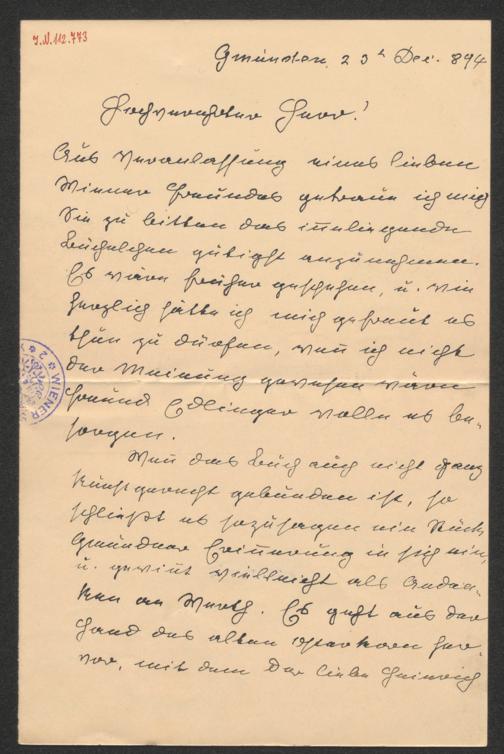 J.N. 112.773
Gmunden, 23t Dec. 894
Hochverehrter Herr!
Aus Veranlassung eines lieben
Wiener Freundes getraue ich mich
Sie zu bitten das inneliegende
Büchelchen gütigst anzunehmen.
Es wäre früher geschehen, u. wie
herzlich hätte ich mich gefreut es
thun zu dürfen, wenn ich nicht
der Meinung gewesen wäre
Freund Edlinger wolle es be-
sorgen.
Wenn das Buch auch nicht ganz
kunstgerecht gebunden ist, so
schließt es sozusagen ein Stück
Gmundner Erinnerung in sich ein,
u. gewinnt vielleicht als Anden-
ken an Werth. Es geht aus der
Hand des alten her-
vor, mit dem der liebe Heinrich
WIENER